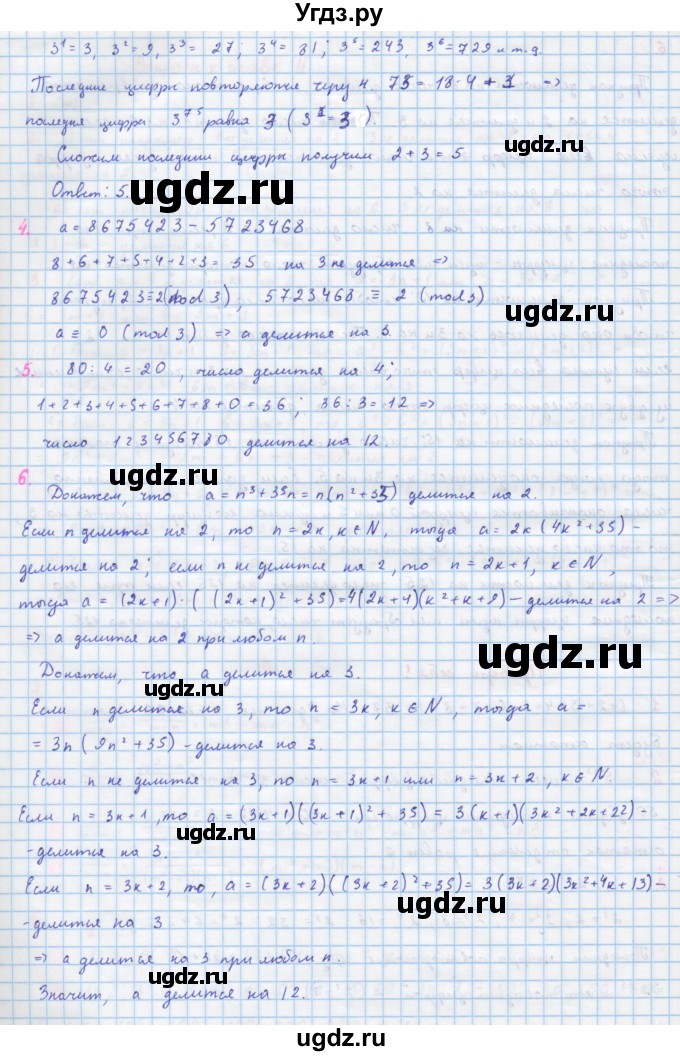 Угдз.ру
3¹ = 3, 3² = 9, 3³ = 27; 3⁴ = 81; 3⁵ = 243, 3⁶ = 729 и т.д.
Последние цифры повторяются через 4. 73 = 18·4 + 1 =>
последня цифра 3⁷⁵ равна 3 (3¹ = 3).
Сложим последнии цифры получим 2 + 3 = 5
Ответ: 5.
ugdz.ru ugdz.ru
4. a = 8675423 − 5723468
8 + 6 + 7 + 5 + 4 + 2 + 3 = 35 на 3 не делится =>
ugdz.ru
8675423 ≡ 2 (mod 3), 5723468 ≡ 2 (mod 3)
ugdz.ru
a ≡ 0 (mod 3) => a делится на 3.
5. 80 : 4 = 20, число делится на 4;
ugdz.ru
1 + 2 + 3 + 4 + 5 + 6 + 7 + 8 + 0 = 36; 36 : 3 = 12 =>
число 123456780 делится на 12.
ugdz.ru
6. Докажем, что a = n³ + 35n = n(n² + 35) делится на 2.
Если n делится на 2, то n = 2k, k ∈ N, тогда a = 2k (4k² + 35) −
ugdz.ru
делится на 2; если n не делится на 2, то n = 2k + 1, k ∈ N,
тогда a = (2k+1)·((2k+1)² + 35) = 4(2k+4)(k²+k+9) − делится на 2 =>
=> a делится на 2 при любом n.
ugdz.ru
Докажем, что a делится на 3.
ugdz.ru
Если n делится на 3, то n = 3k, k ∈ N, тогда a =
= 3n (9n² + 35) − делится на 3.
ugdz.ru
Если n не делится на 3, то n = 3k + 1 или n = 3k + 2, k ∈ N.
Если n = 3k + 1, то a = (3k+1)((3k+1)² + 35) = 3(k+1)(3k² + 2k + 22) −
ugdz.ru
- делится на 3.
Если n = 3k + 2, то, a = (3k+2)((3k+2)² + 35) = 3(3k+2)(3k² + 4k + 13) −
ugdz.ru
- делится на 3
=> a делится на 3 при любом n.
ugdz.ru
Значит, a делится на 12.
ugdz.ru